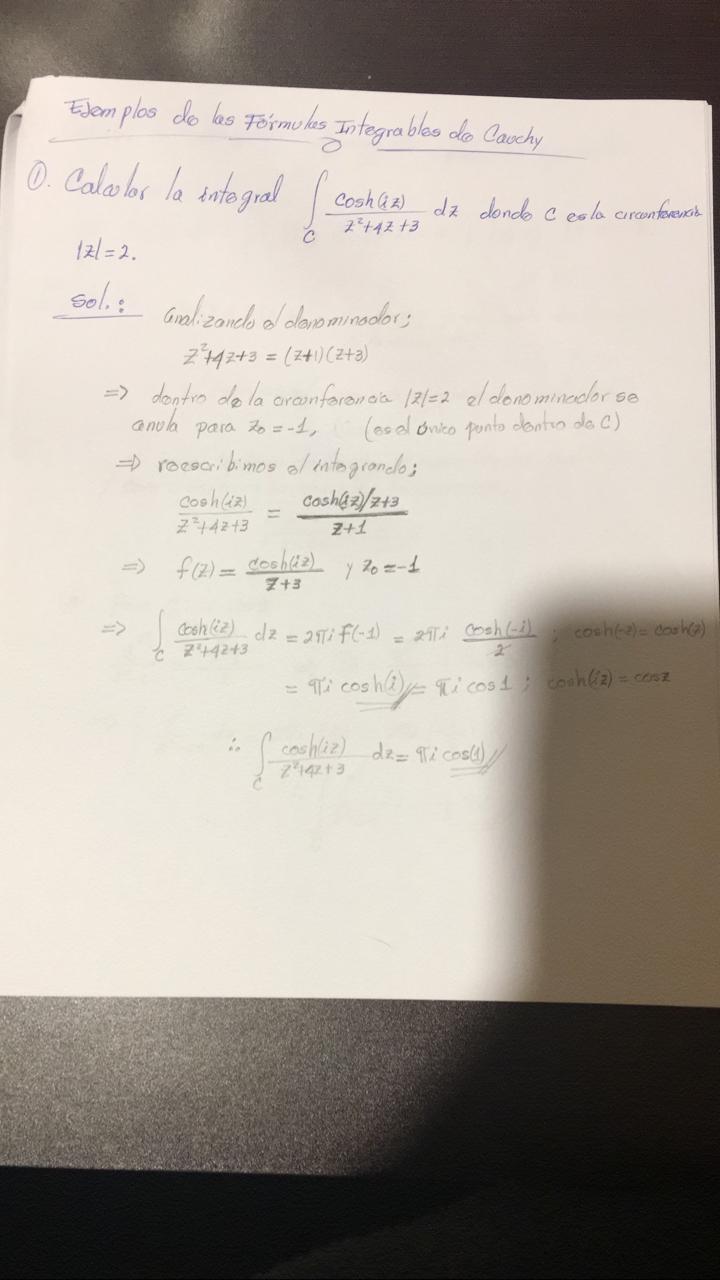 Ejemplos de las Fórmulas Integrables de Cauchy
①. Calcular la integral ∫_C cosh(iz)/(z²+4z+3) dz donde C es la circunferencia
|z|=2.
Sol.: analizando el denominador;
z²+4z+3 = (z+1)(z+3)
=> dentro de la circunferencia |z|=2 el denominador se
anula para z₀=-1, (es el único punto dentro de C)
=> reescribimos el integrando;
cosh(iz)/(z²+4z+3) = (cosh(iz)/z+3)/(z+1)
=> f(z) = cosh(iz)/(z+3) y z₀=-1
=> ∫_C cosh(iz)/(z²+4z+3) dz = 2πi f(-1) = 2πi cosh(-i)/2 ; cosh(-z) = cosh(z)
= πi cosh(i) = πi cos1 ; cosh(iz) = cosz
∴ ∫_C cosh(iz)/(z²+4z+3) dz = πi cos(1)